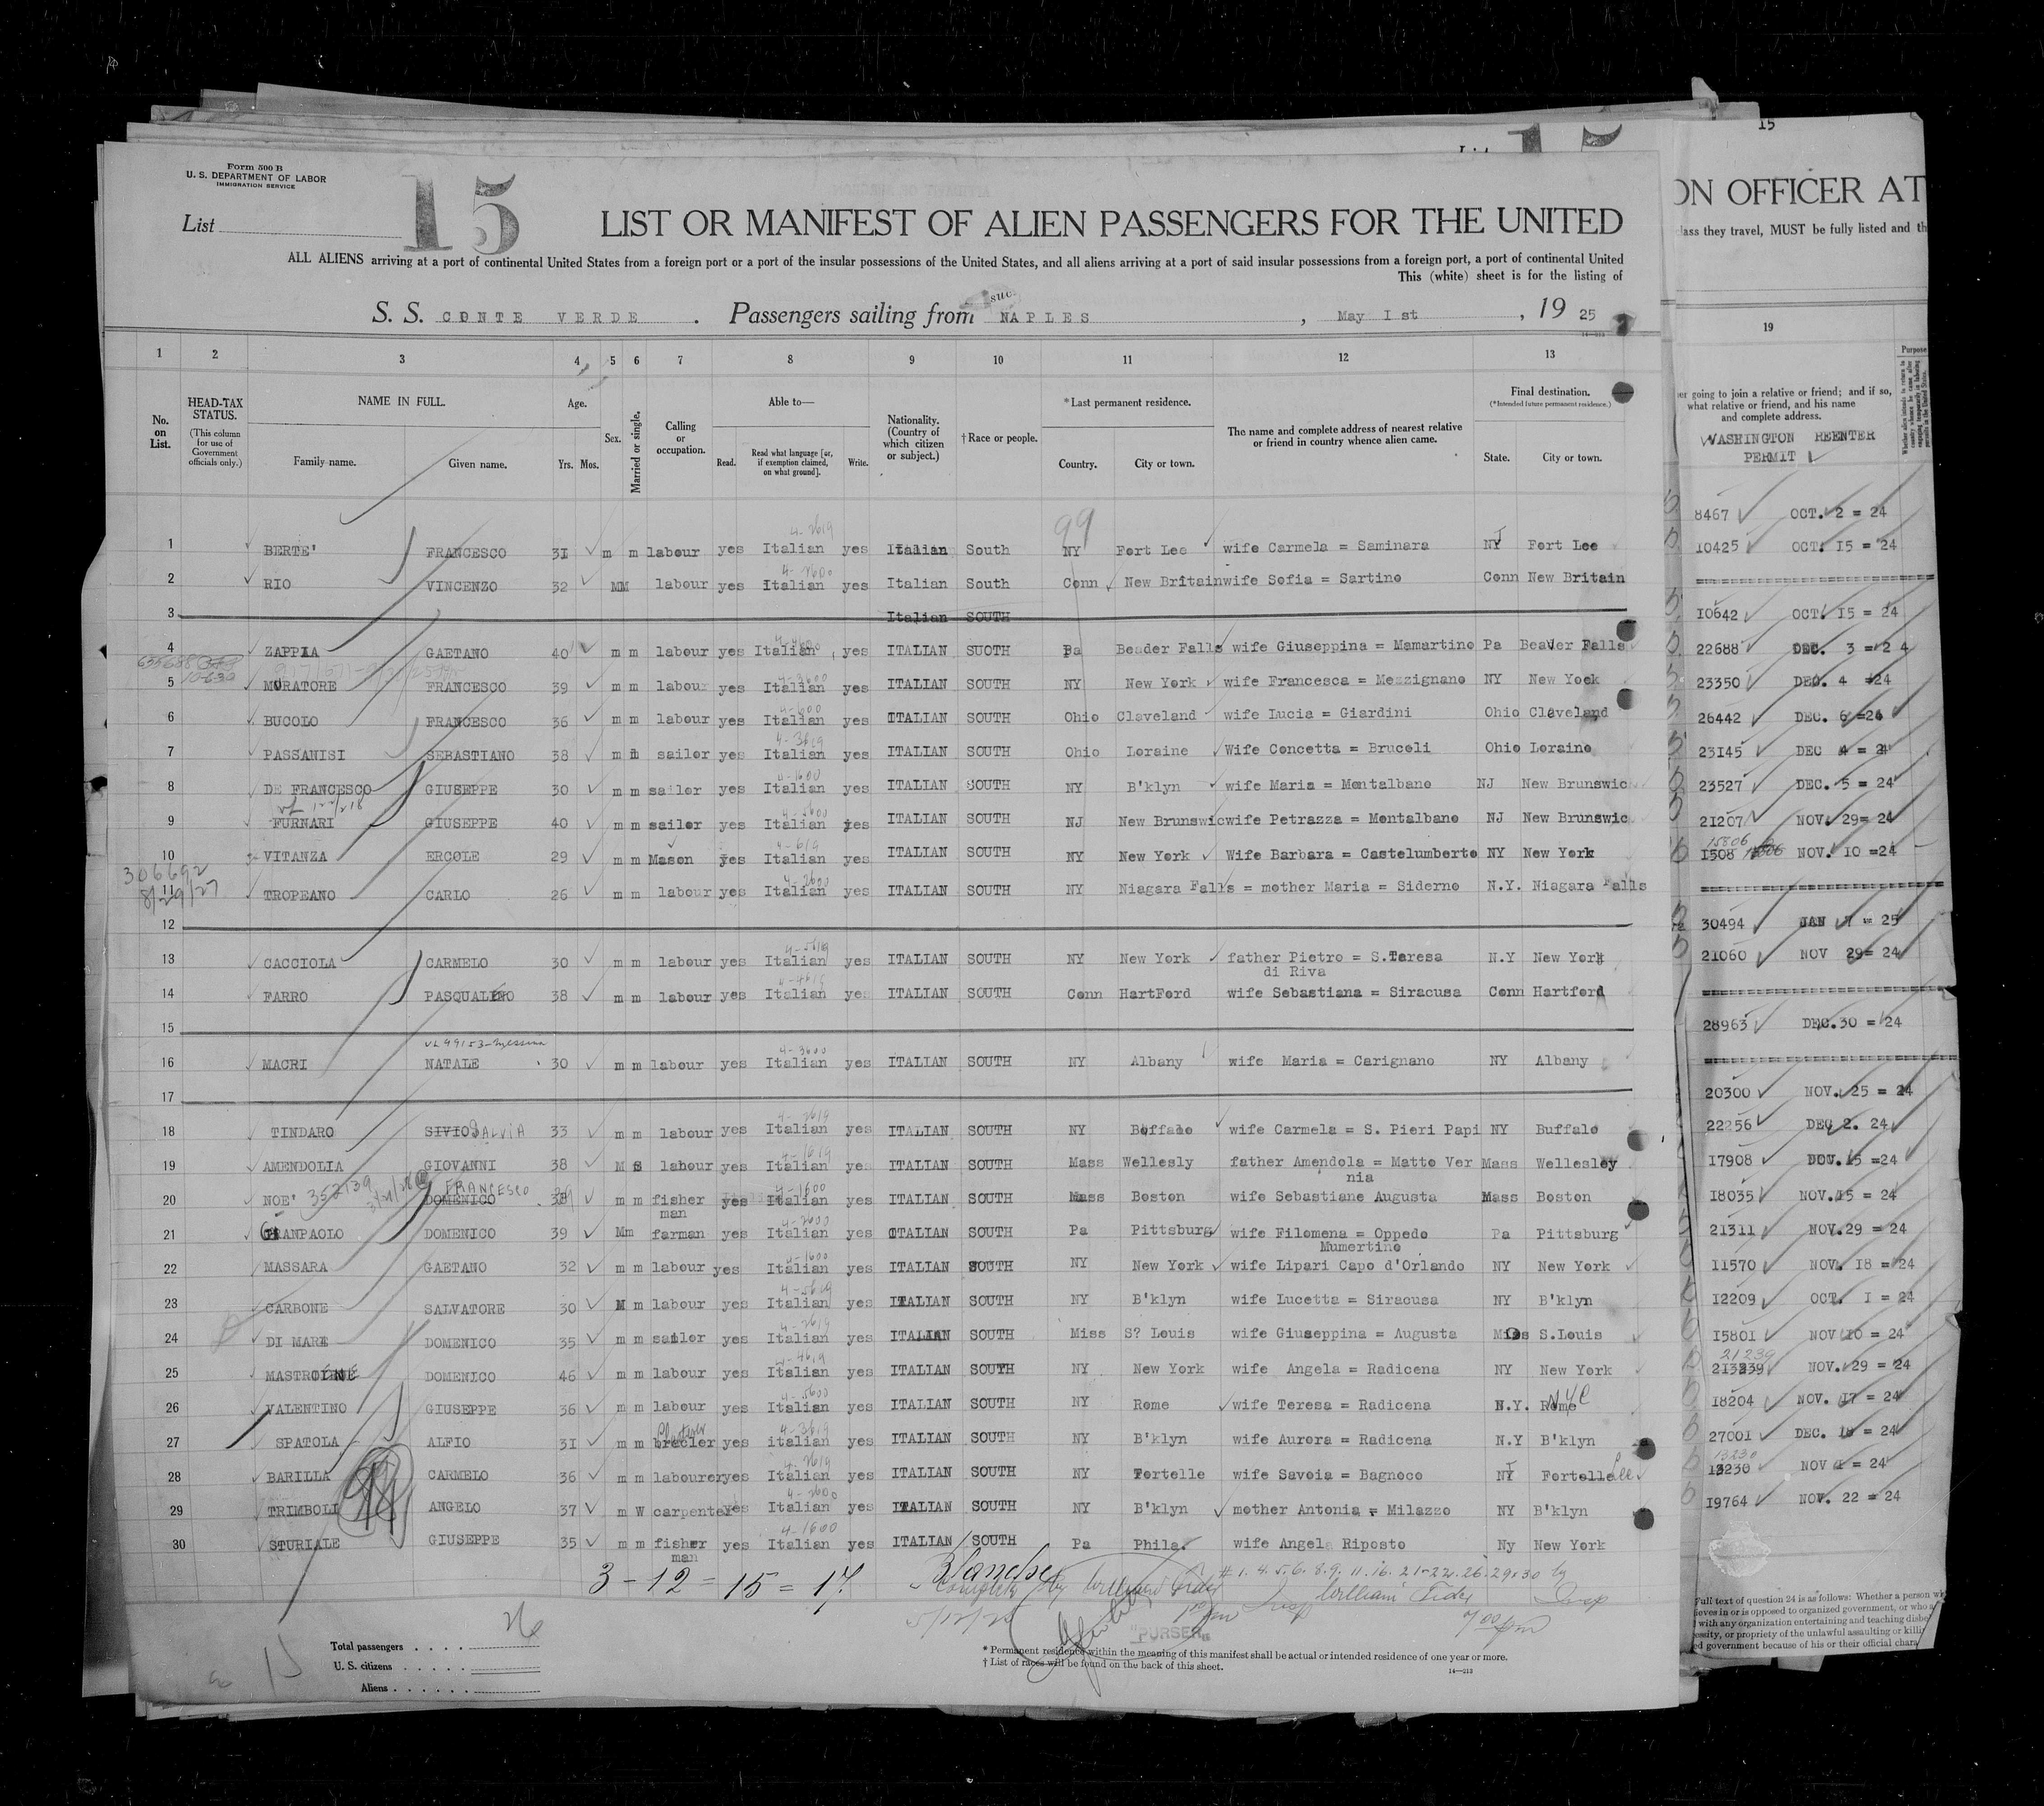 Form 500 B
U. S. DEPARTMENT OF LABOR
IMMIGRATION SERVICE
List 15
LIST OR MANIFEST OF ALIEN PASSENGERS FOR THE UNITED
ALL ALIENS arriving at a port of continental United States from a foreign port or a port of the insular possessions of the United States, and all aliens arriving at a port of said insular possessions from a foreign port, a port of continental United
This (white) sheet is for the listing of
S. S. CONTE VERDE. Passengers sailing from NAPLES, May I st, 19 25
1 2 3 4 5 6 7 8 9 10 11 12 13
No. on List. HEAD-TAX STATUS. (This column for use of Government officials only.) NAME IN FULL. Age. Sex. Married or single. Calling or occupation. Able to— Nationality. (Country of which citizen or subject.) †Race or people. *Last permanent residence. The name and complete address of nearest relative or friend in country whence alien came. Final destination. (*Intended future permanent residence.)
Family name. Given name. Yrs. Mos. Read. Read what language [or, if exemption claimed, on what ground]. Write. Country. City or town. State. City or town.
99
1 BERTE' FRANCESCO 3I m m labour yes Italian yes Italian South NY Fort Lee wife Carmela = Saminara NJ Fort Lee
2 RIO VINCENZO 32 MM labour yes Italian yes Italian South Conn New Britain wife Sofia = Sartino Conn New Britain
3 Italian SOUTH
4 ZAPPIA GAETANO 40 m m labour yes Italian yes ITALIAN SUOTH Pa Beader Falls wife Giuseppina = Mamartino Pa Beaver Falls
5 MURATORE FRANCESCO 39 m m labour yes Italian yes ITALIAN SOUTH NY New York wife Francesca = Mezzignano NY New Yock
6 BUCOLO FRANCESCO 36 m m labour yes Italian yes ITALIAN SOUTH Ohio Cleveland wife Lucia = Giardini Ohio Cleveland
7 PASSANISI SEBASTIANO 38 m m sailor yes Italian yes ITALIAN SOUTH Ohio Loraine Wife Concetta = Brucoli Ohio Loraine
8 DE FRANCESCO GIUSEPPE 30 m m sailer yes Italian yes ITALIAN SOUTH NY B'klyn wife Maria = Montalbano NJ New Brunswic
9 FURNARI GIUSEPPE 40 m m sailor yes Italian yes ITALIAN SOUTH NJ New Brunswic wife Petrazza = Montalbano NJ New Brunswic
10 VITANZA ERCOLE 29 m m Mason yes Italian yes ITALIAN SOUTH NY New York Wife Barbara = Castelumberto NY New York
306692
8/29/27
11 TROPEANO CARLO 26 m m labour yes Italian yes ITALIAN SOUTH NY Niagara Falls = mother Maria = Siderno N.Y. Niagara Falls
12
13 CACCIOLA CARMELO 30 m m labour yes Italian yes ITALIAN SOUTH NY New York father Pietro = S.Teresa N.Y New York
di Riva
14 FARRO PASQUALINO 38 m m labour yes Italian yes ITALIAN SOUTH Conn HartFord wife Sebastiana = Siracusa Conn Hartford
15
16 MACRI NATALE 30 m m labour yes Italian yes ITALIAN SOUTH NY Albany wife Maria = Carignano NY Albany
17
18 TINDARO SIVIO SALVIA 33 m m labour yes Italian yes ITALIAN SOUTH NY Buffalo wife Carmela = S. Pieri Papi NY Buffalo
19 AMENDOLIA GIOVANNI 38 M S labour yes Italian yes ITALIAN SOUTH Mass Wellesly father Amendola = Matto Ver Mass Wellesley
nia
20 NOE' 352139 DOMENICO FRANCESCO m m fisher yes Italian yes ITALIAN SOUTH Mass Boston wife Sebastiane Augusta Mass Boston
man
21 GIANPAOLO DOMENICO 39 Mm farman yes Italian yes ITALIAN SOUTH Pa Pittsburg wife Filomena = Oppedo Pa Pittsburg
Mumertino
22 MASSARA GAETANO 32 m m labour yes Italian yes ITALIAN SOUTH NY New York wife Lipari Capo d'Orlando NY New York
23 CARBONE SALVATORE 30 M m labour yes Italian yes ITALIAN SOUTH NY B'klyn wife Lucetta = Siracusa NY B'klyn
24 DI MARE DOMENICO 35 m m sailor yes Italian yes ITALIAN SOUTH Miss S? Louis wife Giuseppina = Augusta Miss S.Louis
25 DOMENICO 46 m m labour yes Italian yes ITALIAN SOUTH NY New York wife Angela = Radicena NY New York
26 VALENTINO GIUSEPPE 36 m m labour yes Italian yes ITALIAN SOUTH NY Rome wife Teresa = Radicena N.Y. Rome NYC
27 SPATOLA ALFIO 3I m m yes italian yes ITALIAN SOUTH NY B'klyn wife Aurora = Radicena N.Y B'klyn
28 BARILLA CARMELO 36 m m labourer yes Italian yes ITALIAN SOUTH NY Fortelle wife Savoia = Bagnoco NJ Fortelle Lee
29 TRIMBOLI ANGELO 37 m W carpenter yes Italian yes ITALIAN SOUTH NY B'klyn mother Antonia = Milazzo NY B'klyn
30 STURIALE GIUSEPPE 35 m m fisher yes Italian yes ITALIAN SOUTH Pa Phila. wife Angela Riposto Ny New York
man
3 - 12 = 15 = 17
# 1. 4. 5. 6. 8. 9. 11. 16. 21-22. 26. 29+30 by
"PURSER"
Total passengers 26
U. S. citizens
Aliens
* Permanent residence within the meaning of this manifest shall be actual or intended residence of one year or more.
† List of races will be found on the back of this sheet.
14—213
15
ON OFFICER AT
lass they travel, MUST be fully listed and th
19
er going to join a relative or friend; and if so, what relative or friend, and his name and complete address.
WASHINGTON REENTER
PERMIT
8467 OCT. 2 = 24
I0425 OCT. I5 = 24
I0642 OCT. I5 = 24
22688 DEC. 3 = 2 4
23350 DEC. 4 =24
26442 DEC. 6 =24
23145 DEC 4 = 24
23527 DEC. 5 = 24
21207 NOV. 29= 24
I508 15806 NOV. I0 =24
30494 JAN 7 = 25
21060 NOV 29= 24
28963 DEC.30 = 24
20300 NOV. 25 = 24
22256 DEC 2. 24
I7908 =24
I8035 NOV.I5 = 24
21311 NOV.29 = 24
II570 NOV. I8 = 24
I2209 OCT. I = 24
I5801 NOV I0 = 24
21239 NOV. 29 = 24
I8204 NOV. I7 = 24
27001 DEC. = 24
13230 NOV = 24
I9764 NOV. 22 = 24
Full text of question 24 is as follows: Whether a person wh
lieves in or is opposed to organized government, or who a
with any organization entertaining and teaching disbe
essity, or propriety of the unlawful assaulting or killin
ed government because of his or their official chara